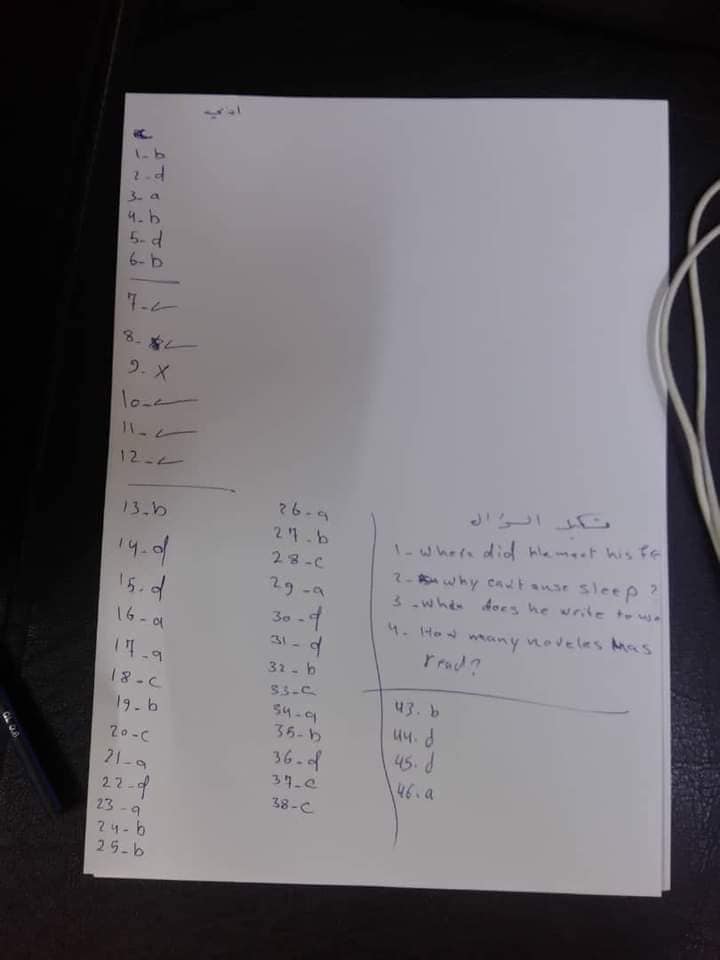 ادبي
1-b
2-d
3-a
4-b
5-d
6-b
7-✓
8-✓
9-X
10-✓
11-✓
12-✓
13-b
14-d
15-d
16-a
17-a
18-c
19-b
20-c
21-a
22-d
23-a
24-b
25-b
26-a
27-b
28-c
29-a
30-d
31-d
32-b
33-c
34-a
35-b
36-d
37-c
38-c
السؤال
1- where did he meet his
2- why can't sleep?
3- does he write to
4- How many noveles has
read?
43. b
44. d
45. d
46. a